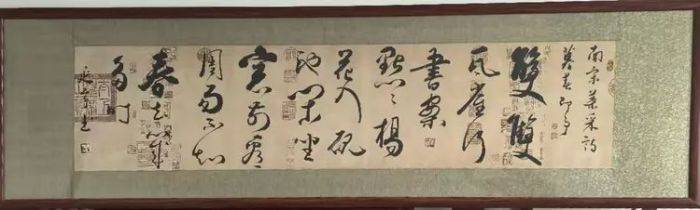 南宋葉采詩
暮春即事
雙雙
瓦雀行
書案
點點楊
花入硯
池閒坐
窓前
周易不知
春去幾
多時